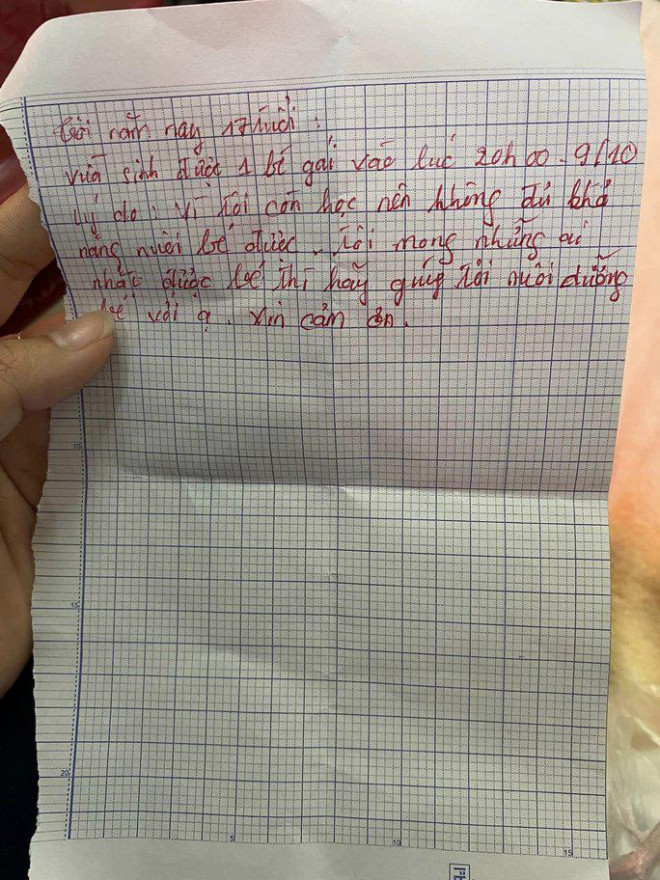 Tôi năm nay 17 tuổi:
vừa sinh được 1 bé gái vào lúc 20h00 - 9/10
Lý do: Vì tôi còn học nên không đủ khả
năng nuôi bé được. Tôi mong những ai
nhặt được bé thì hãy giúp tôi nuôi dưỡng
bé với ạ. Xin cảm ơn.
10
15
20
5
10
15